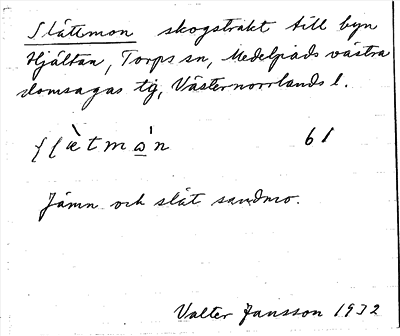 Slättmon skogstrakt till byn
Hjältan, Torps sn, Medelpads västra
domsagas tg, Västernorrlands l.
61
Jämn och slät sandmo.
Valter Jansson 1932